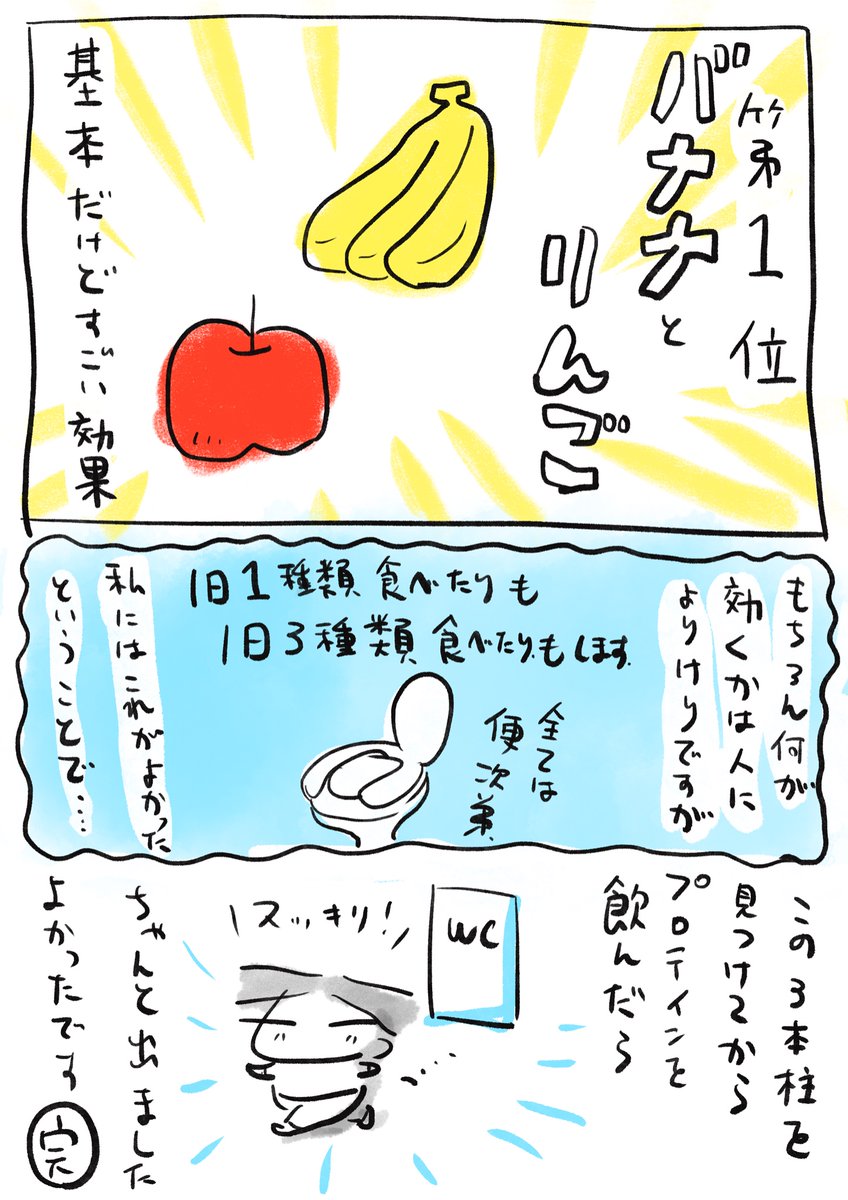 第1位
バナナと
りんご
基本だけどすごい効果
もちろん何が
効くかは人に
よりけりですが
1日1種類食べたりも
1日3種類食べたりもします
全ては
便次第
私にはこれがよかった
ということで…
この3本柱を
見つけてから
プロテインを
飲んだら
WC
スッキリ!
ちゃんと出ました
よかったです
完